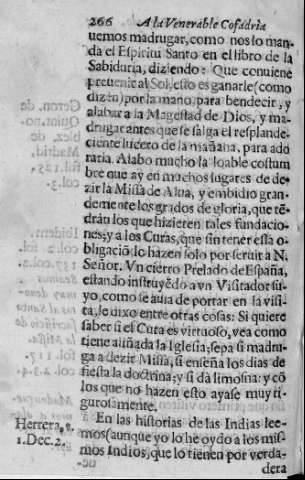 266 A la Venerable Cofadria
uemos madrugar, como nos lo man-
da el Espiritu Santo en el libro de la
Sabiduria, diziendo: Que conuiene
preuenir al Sol, esto es ganarle (como
dizen) por la mano, para bendecir, y
alabar a la Magestad de Dios, y ma-
drugar antes que se salga el resplande-
ciente lucero de la mañana, para ado
rarla. Alabo mucho la loable costum
bre que ay en muchos lugares de de-
zir la Missa de Alua, y embidio gran-
demente los grados de gloria, que tẽ-
drán los que hizieren tales fundacio-
nes; y a los Curas, que sin tener essa o-
bligaciõ lo hazen solo por seruir a N.
Señor. Vn cierto Prelado de España,
estando instruyẽdo a vn Visitador su-
yo, como se auia de portar en la visi-
ta, le dixo entre otras cosas: Si quiere
saber si el Cura es virtuoso, vea como
tiene aliñada la Iglesia; sepa si madru-
ga a dezir Missa, si enseña los dias de
fiesta la doctrina; y si dà limosna: y cõ
los que no hazen esto ayase muy ti-
gurosamente.
En las historias de las Indias lee-
Herrera,
mos (aunque yo lo he oydo a los mis-
1. Dec. 2.
mos Indios, que lo tienen por verda-
dera